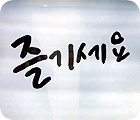 즐기세요